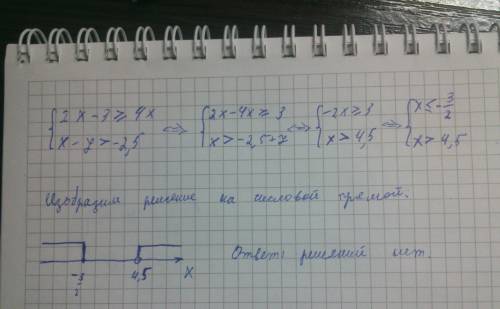 {2x-3≥4x {2x-4x≥3 {-2x≥3 {x≤-3/2
{x-7>-2,5 <=> {x>-2,5+7 <=> {x>4,5 <=> {x>4,5
Изобразим решение на числовой прямой.
-3/2 4,5 x
Ответ: решений нет.